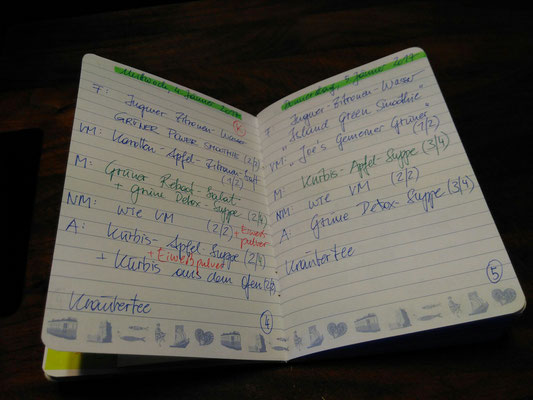 Mittwoch, 4. Jänner 2017
F: Ingwer-Zitronen-Wasser
GRÜNER POWER SMOOTHIE (2/2)
K
VM: Karotten-Apfel-Zitronen-Saft
(1/2)
M: Grüner Reboot-Salat
+ Grüne Detox-Suppe (2/4)
NM: wie VM (2/2) + Eiweiß-
pulver
A: Kürbis-Apfel-Suppe (2/4)
+ Eiweißpulver
+ Kürbis aus dem Ofen (2/2)
Kräutertee
4
Donnerstag, 5. Jänner 2017
F: Ingwer-Zitronen-Wasser
"Island Green Smoothie"
VM: "Joe's Gemeiner Grüner"
(1/2)
M: Kürbis-Apfel-Suppe (3/4)
NM: wie VM (2/2)
A: Grüne Detox-Suppe (3/4)
Kräutertee
5